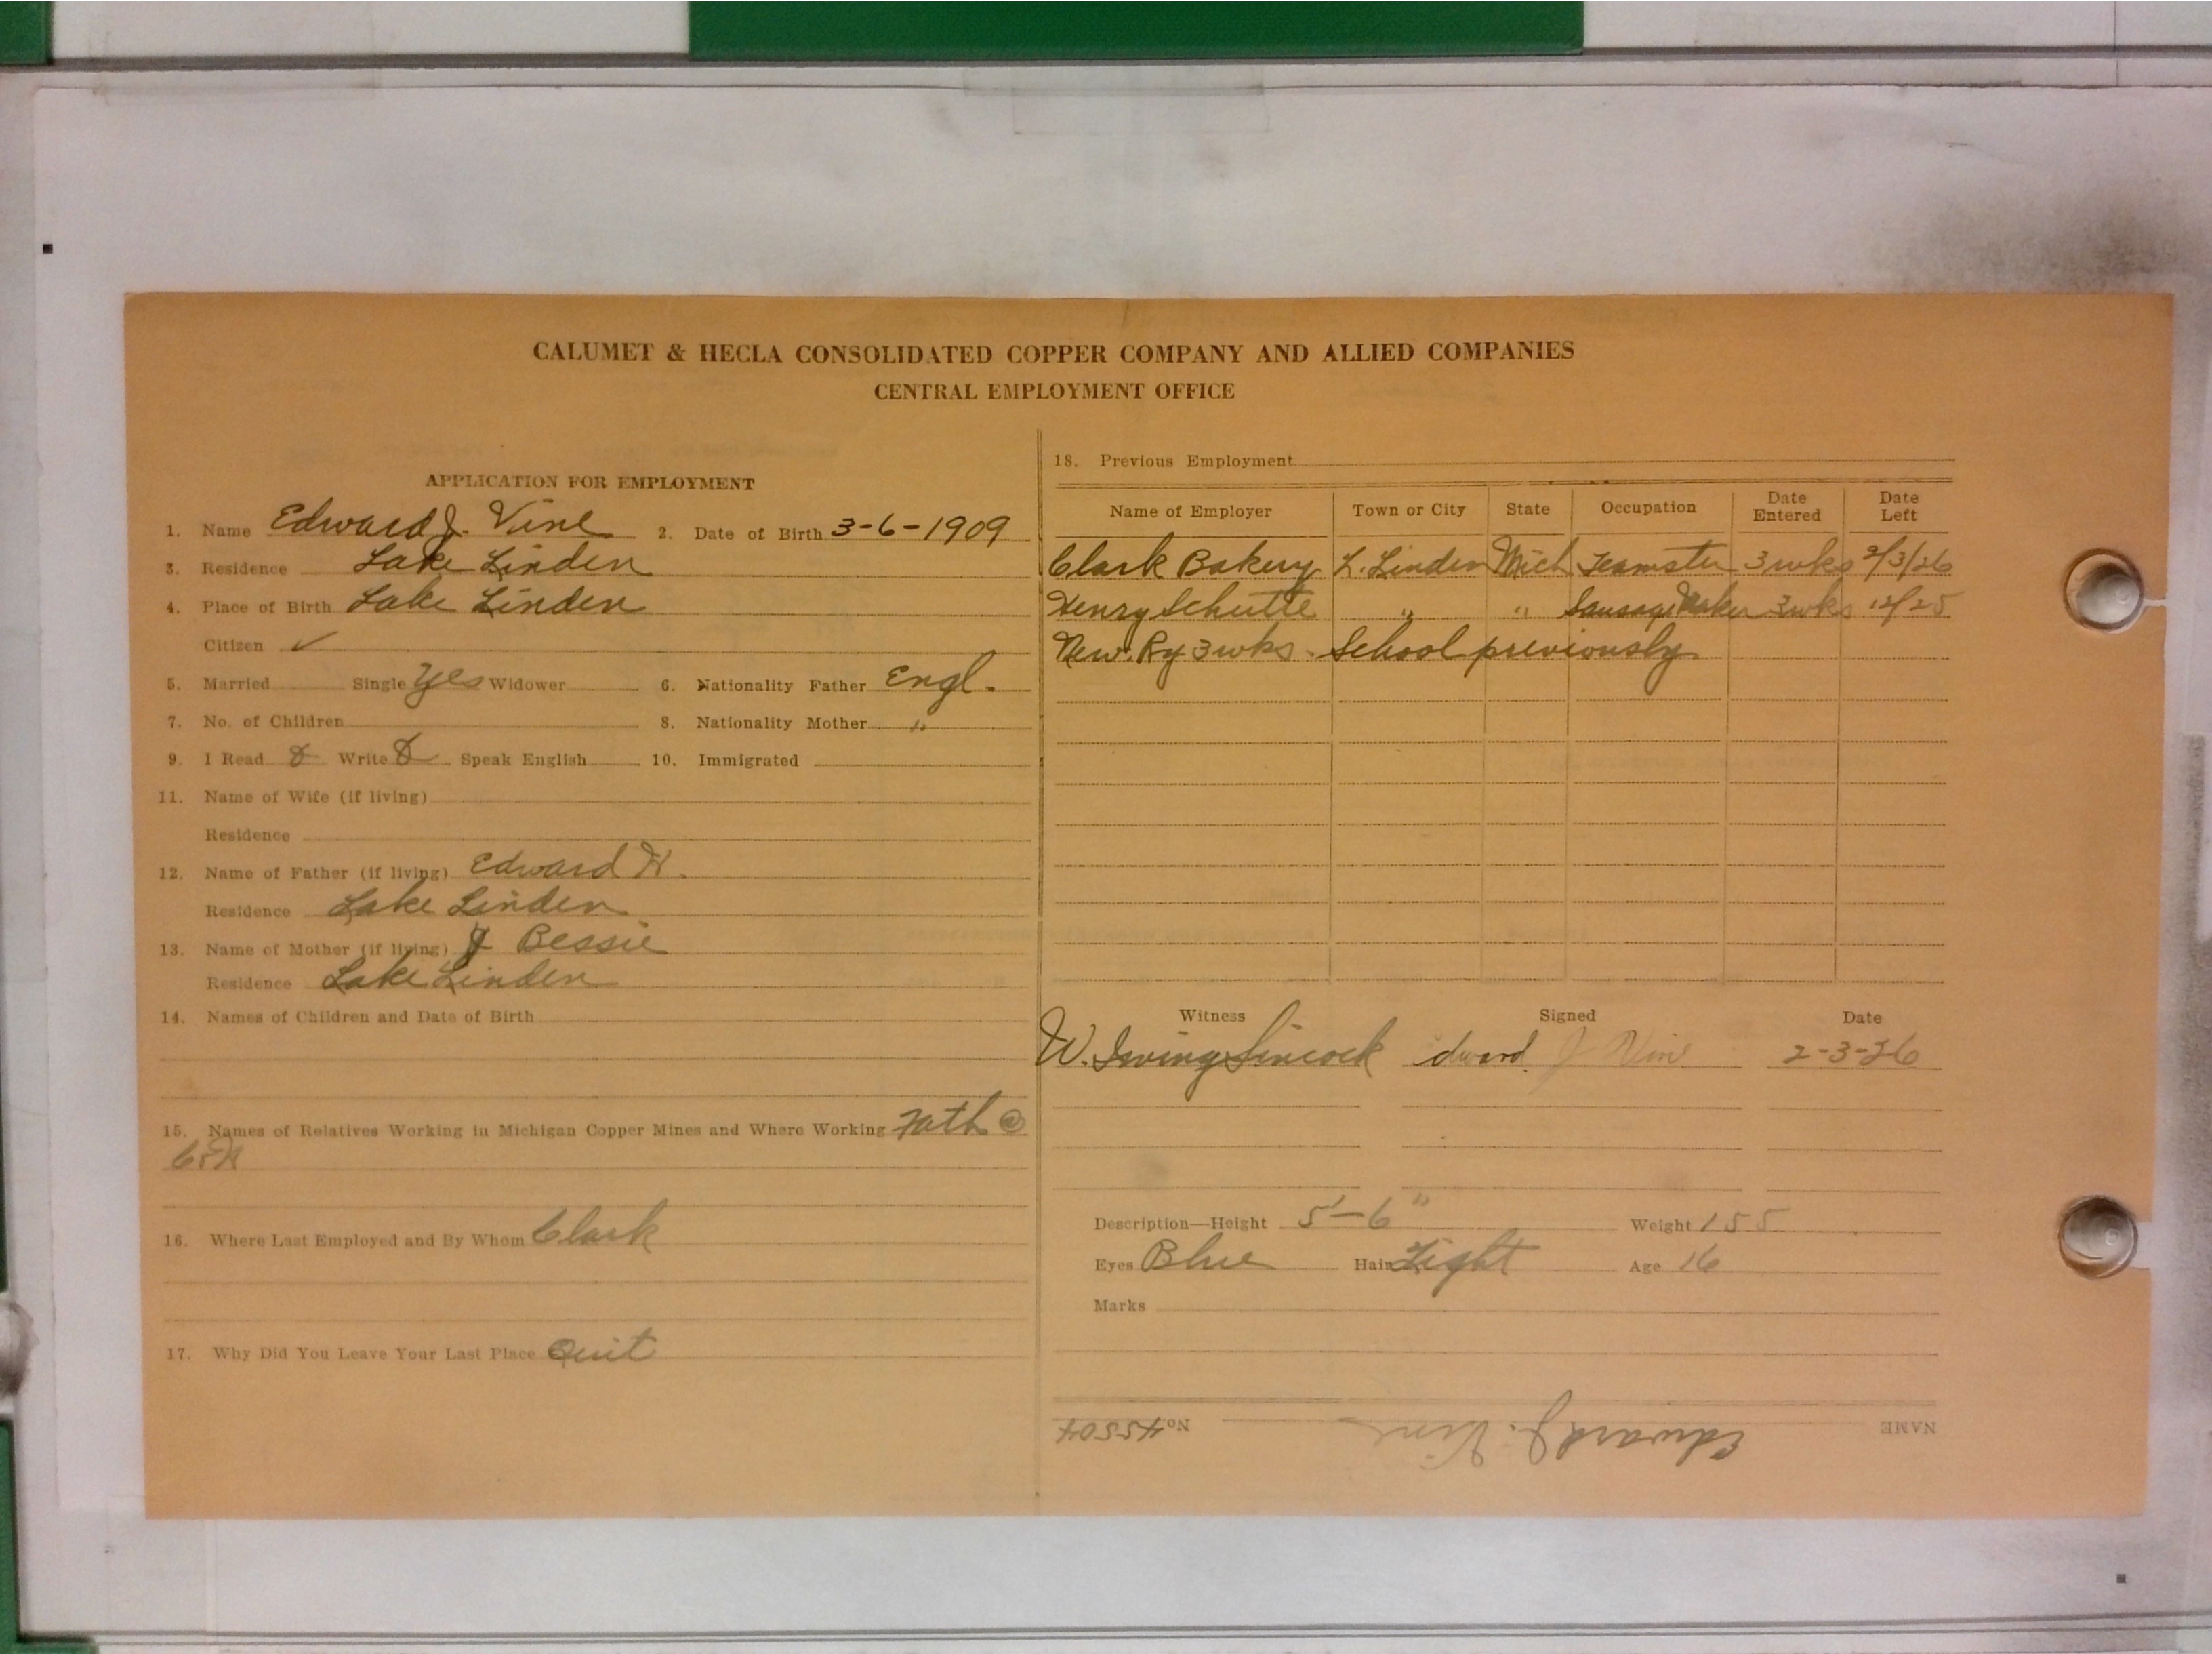 CALUMET & HECLA CONSOLIDATED COPPER COMPANY AND ALLIED COMPANIES
CENTRAL EMPLOYMENT OFFICE
APPLICATION FOR EMPLOYMENT
1. Name Edward J. Vine 2. Date of Birth 3-6-1909
3. Residence Lake Linden
4. Place of Birth Lake Linden
Citizen ✓
5. Married Single Yes Widower 6. Nationality Father Engl.
7. No. of Children 8. Nationality Mother "
9. I Read & Write & Speak English 10. Immigrated
11. Name of Wife (if living)
Residence
12. Name of Father (if living) Edward H.
Residence Lake Linden
13. Name of Mother (if living) Bessie
Residence Lake Linden
14. Names of Children and Date of Birth
15. Names of Relatives Working in Michigan Copper Mines and Where Working Fath @
C&H
16. Where Last Employed and By Whom Clark
17. Why Did You Leave Your Last Place Quit
18. Previous Employment
Name of Employer Town or City State Occupation Date Entered Date Left
Clark Bakery L. Linden Mich Teamster 3 wks 2/3/26
Henry Schutte " " Sausage Maker 3 wks 12/25
New. Ry 3 wks. School previously
Witness Signed Date
W. Irving Sincock dward J Vine 2-3-26
Description—Height 5'-6" Weight 155
Eyes Blue Hair Light Age 16
Marks
NAME Edward J. Vine No. 45504